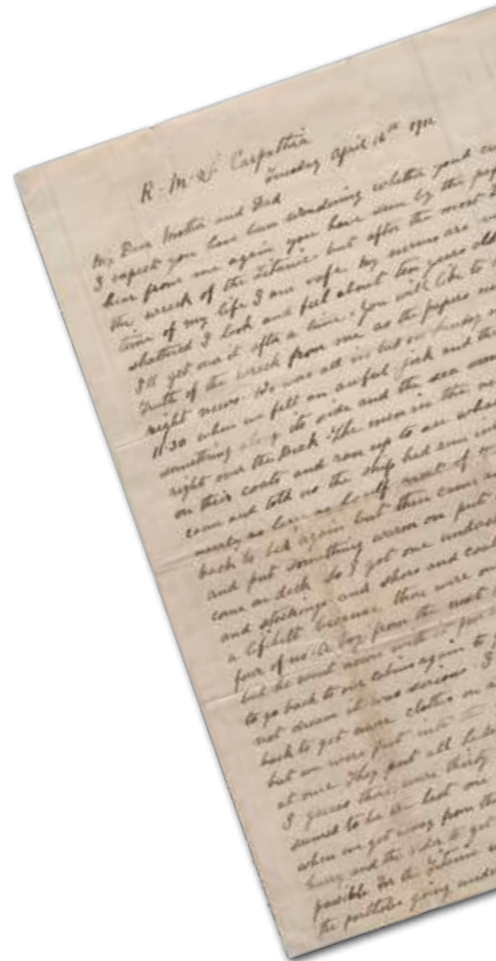 R.M.S. Carpathia
Tuesday April 16th 1912
My Dear Mother and Dad
I expect you have been wondering whether you'd
hear from me again you have seen by the
the wreck of the Titanic but after the most
time of my life I am safe. My nerves are
shattered I look and feel about ten years
I'll get over it after a time. You will like to
truth of the wreck from me as the papers
right news. We was all in bed on Sunday
11.30 when we felt an awful jerk and the
something along its side and the sea
right over the Deck. The men in the
on their coats and ran up to see
came and told us the ship had run
nearly as low as
back to bed again but then came
and put something warm on put
come on deck. So I got one
and stockings and shoes and
a lifebelt because there were
four of us. A boy from the next
but he
to go back to our cabins again to
not dream it was serious. I
back to get more clothes on
but we were put into
at once. They put all
I guess there were thirty
seemed to be the last one
when we got away from the
hurry and the order to get
possible for the Titanic
the portholes going under